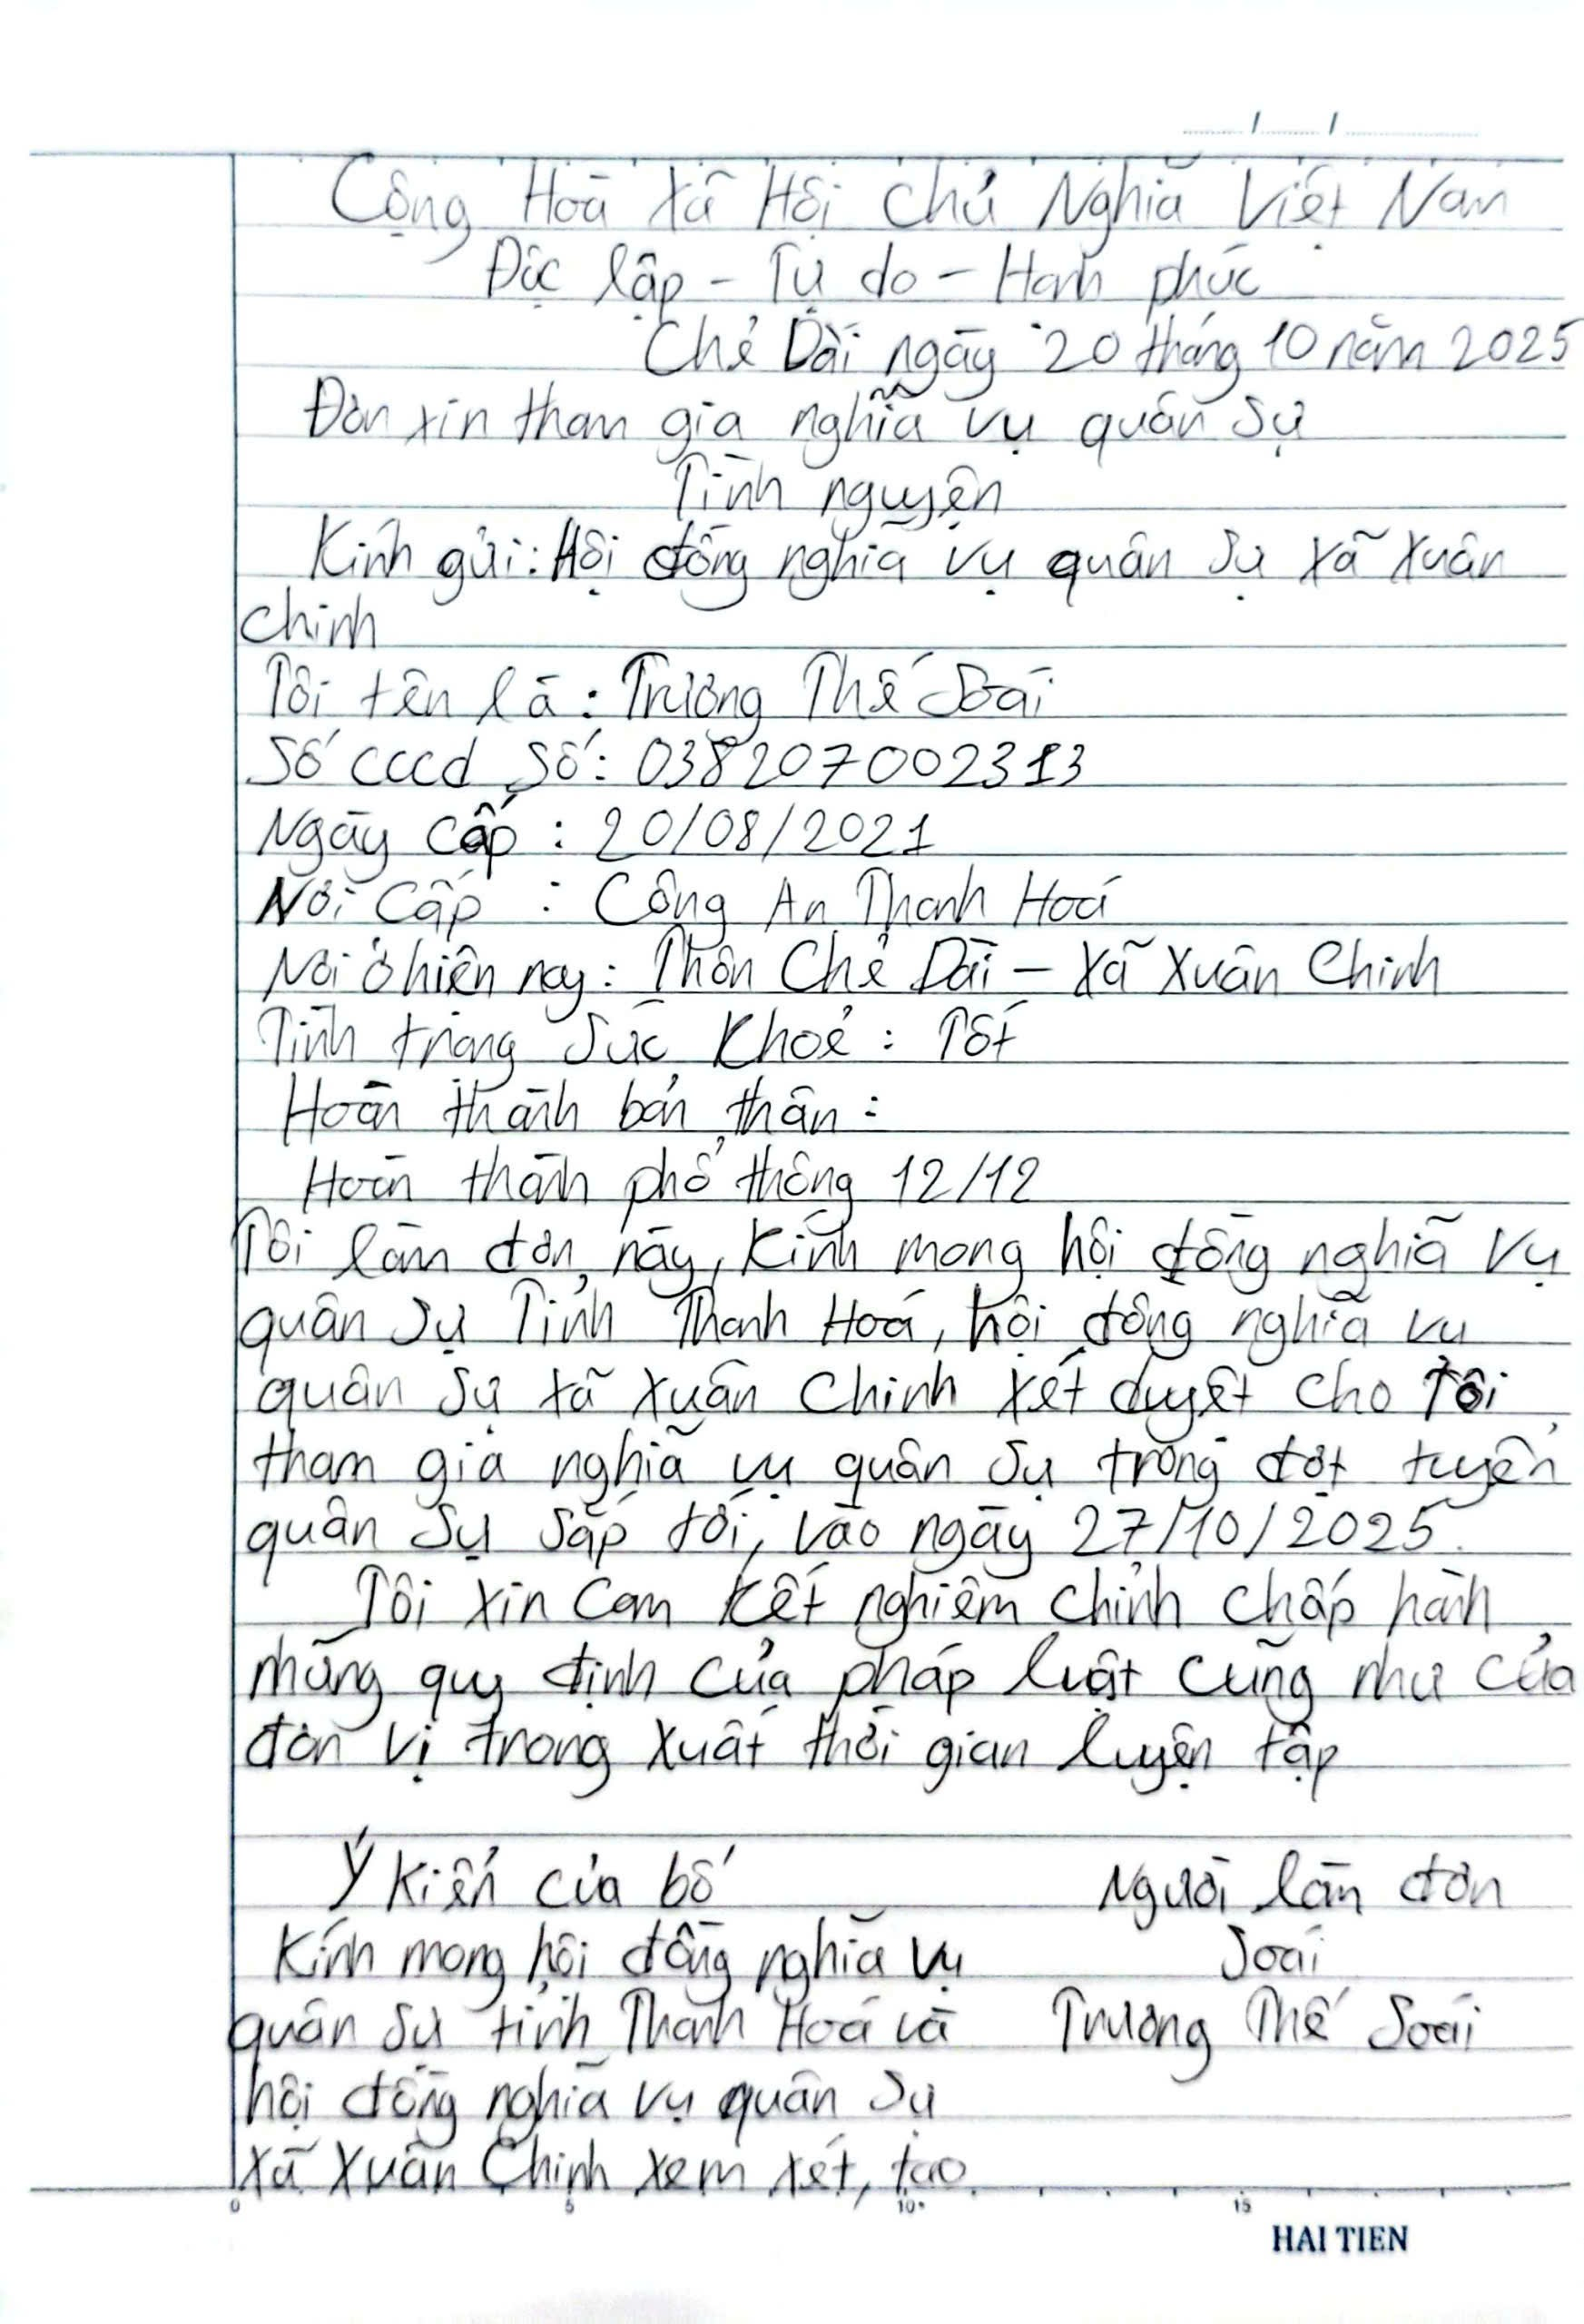 Cộng Hoà Xã Hội Chủ Nghĩa Việt Nam
Độc lập - Tự do - Hạnh phúc
Chẻ Dài ngày 20 tháng 10 năm 2025
Đơn xin tham gia nghĩa vụ quân sự
Tình nguyện
Kính gửi: Hội đồng nghĩa vụ quân sự xã Xuân
Chinh
Tôi tên là : Trương Thế Soái
Số cccd số: 038207002313
Ngày cấp : 20/08/2021
Nơi Cấp : Công An Thanh Hoá
Nơi ở hiện nay: Thôn Chẻ Dài - Xã Xuân Chinh
Tình trạng Sức Khoẻ : Tốt
Hoàn thành bản thân :
Hoàn thành phổ thông 12/12
Tôi làm đơn này, Kính mong hội đồng nghĩa vụ
quân sự Tỉnh Thanh Hoá, hội đồng nghĩa vụ
quân sự xã Xuân Chinh xét duyệt cho Tôi
tham gia nghĩa vụ quân sự trong đợt tuyển
quân sự sắp tới, vào ngày 27/10/2025.
Tôi xin Cam Kết nghiêm chỉnh chấp hành
những quy định của pháp luật cũng như của
đơn vị trong xuất thời gian luyện tập
Ý Kiến của bố
Người làm đơn
Kính mong hội đồng nghĩa vụ
Soái
quân sự tỉnh Thanh Hoá và
Trương Thế Soái
hội đồng nghĩa vụ quân sự
xã Xuân Chinh xem xét, tạo
0 5 10 15
HAI TIEN